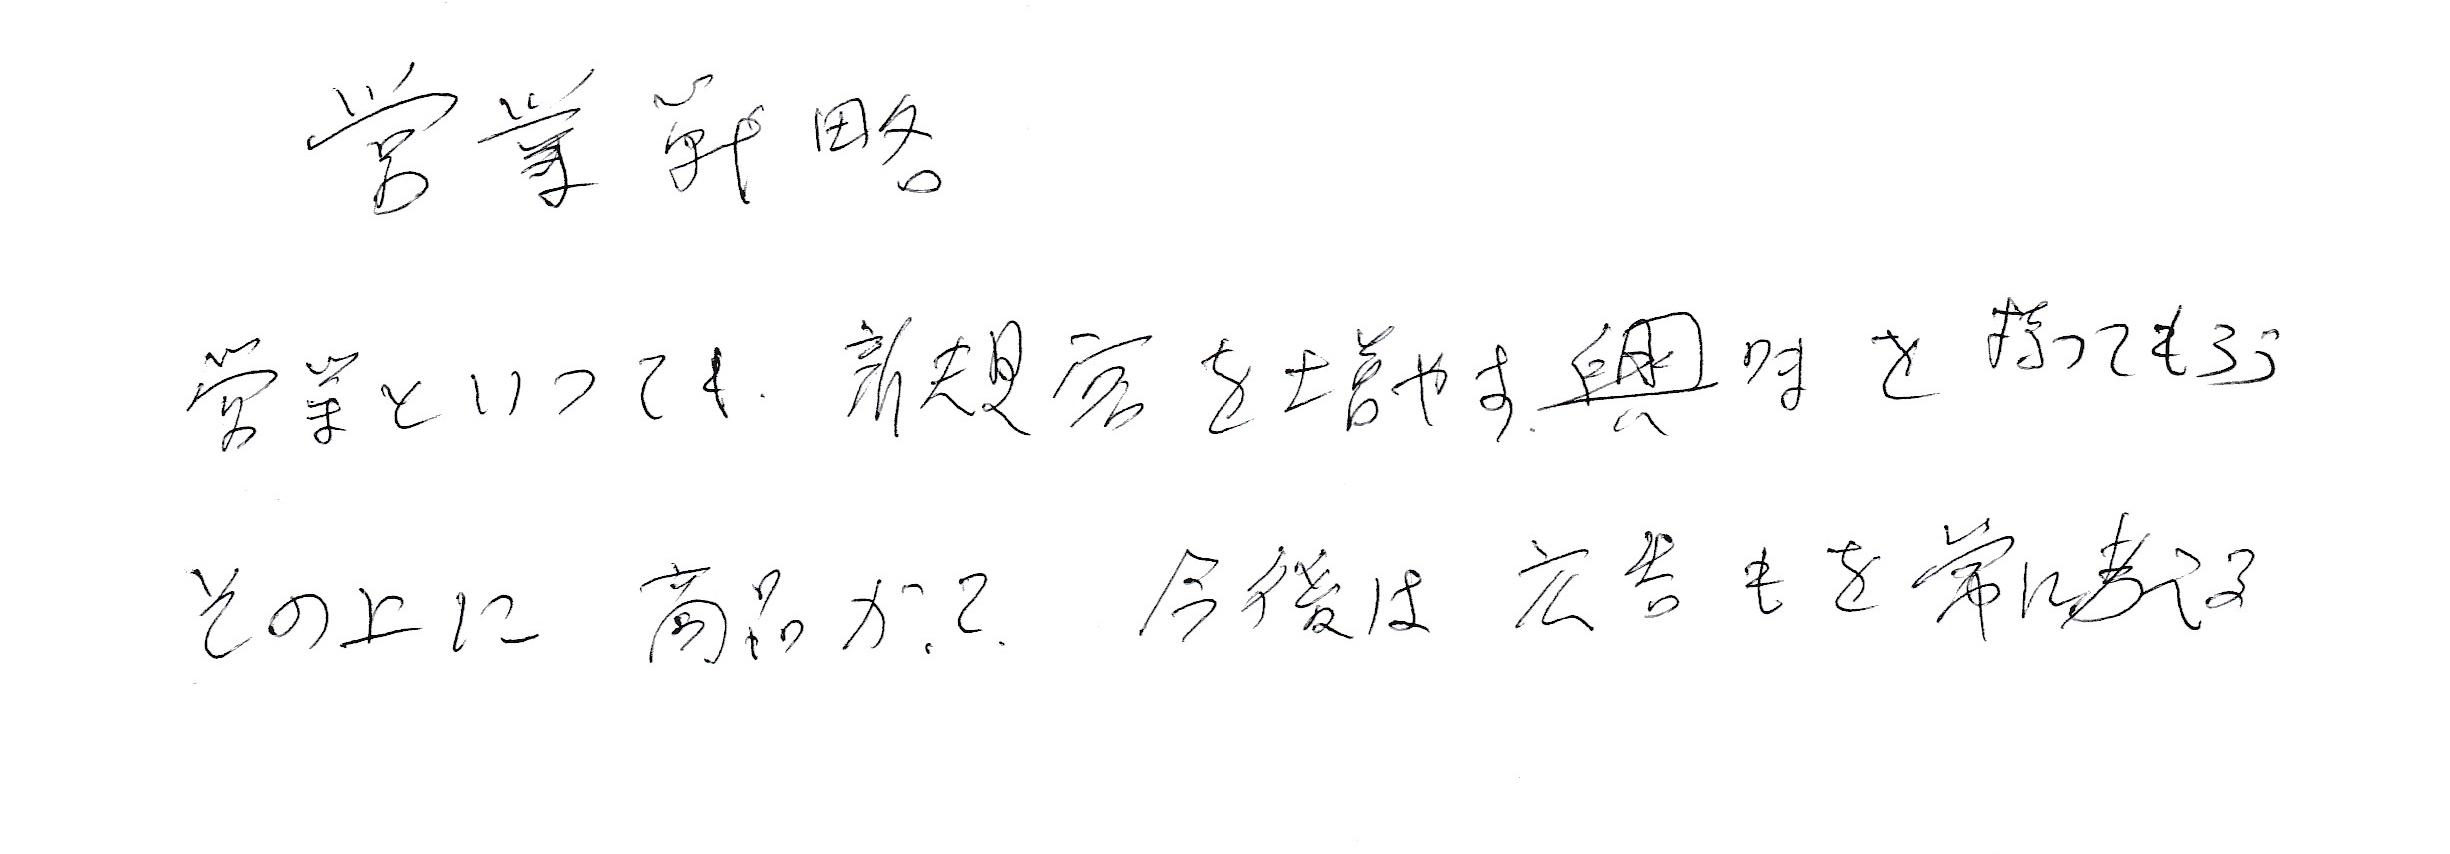 営業戦略
営業といっても、新規客を増やす、興味を持ってもらう
その上に 商品があって、今後は 広告もを常に考える